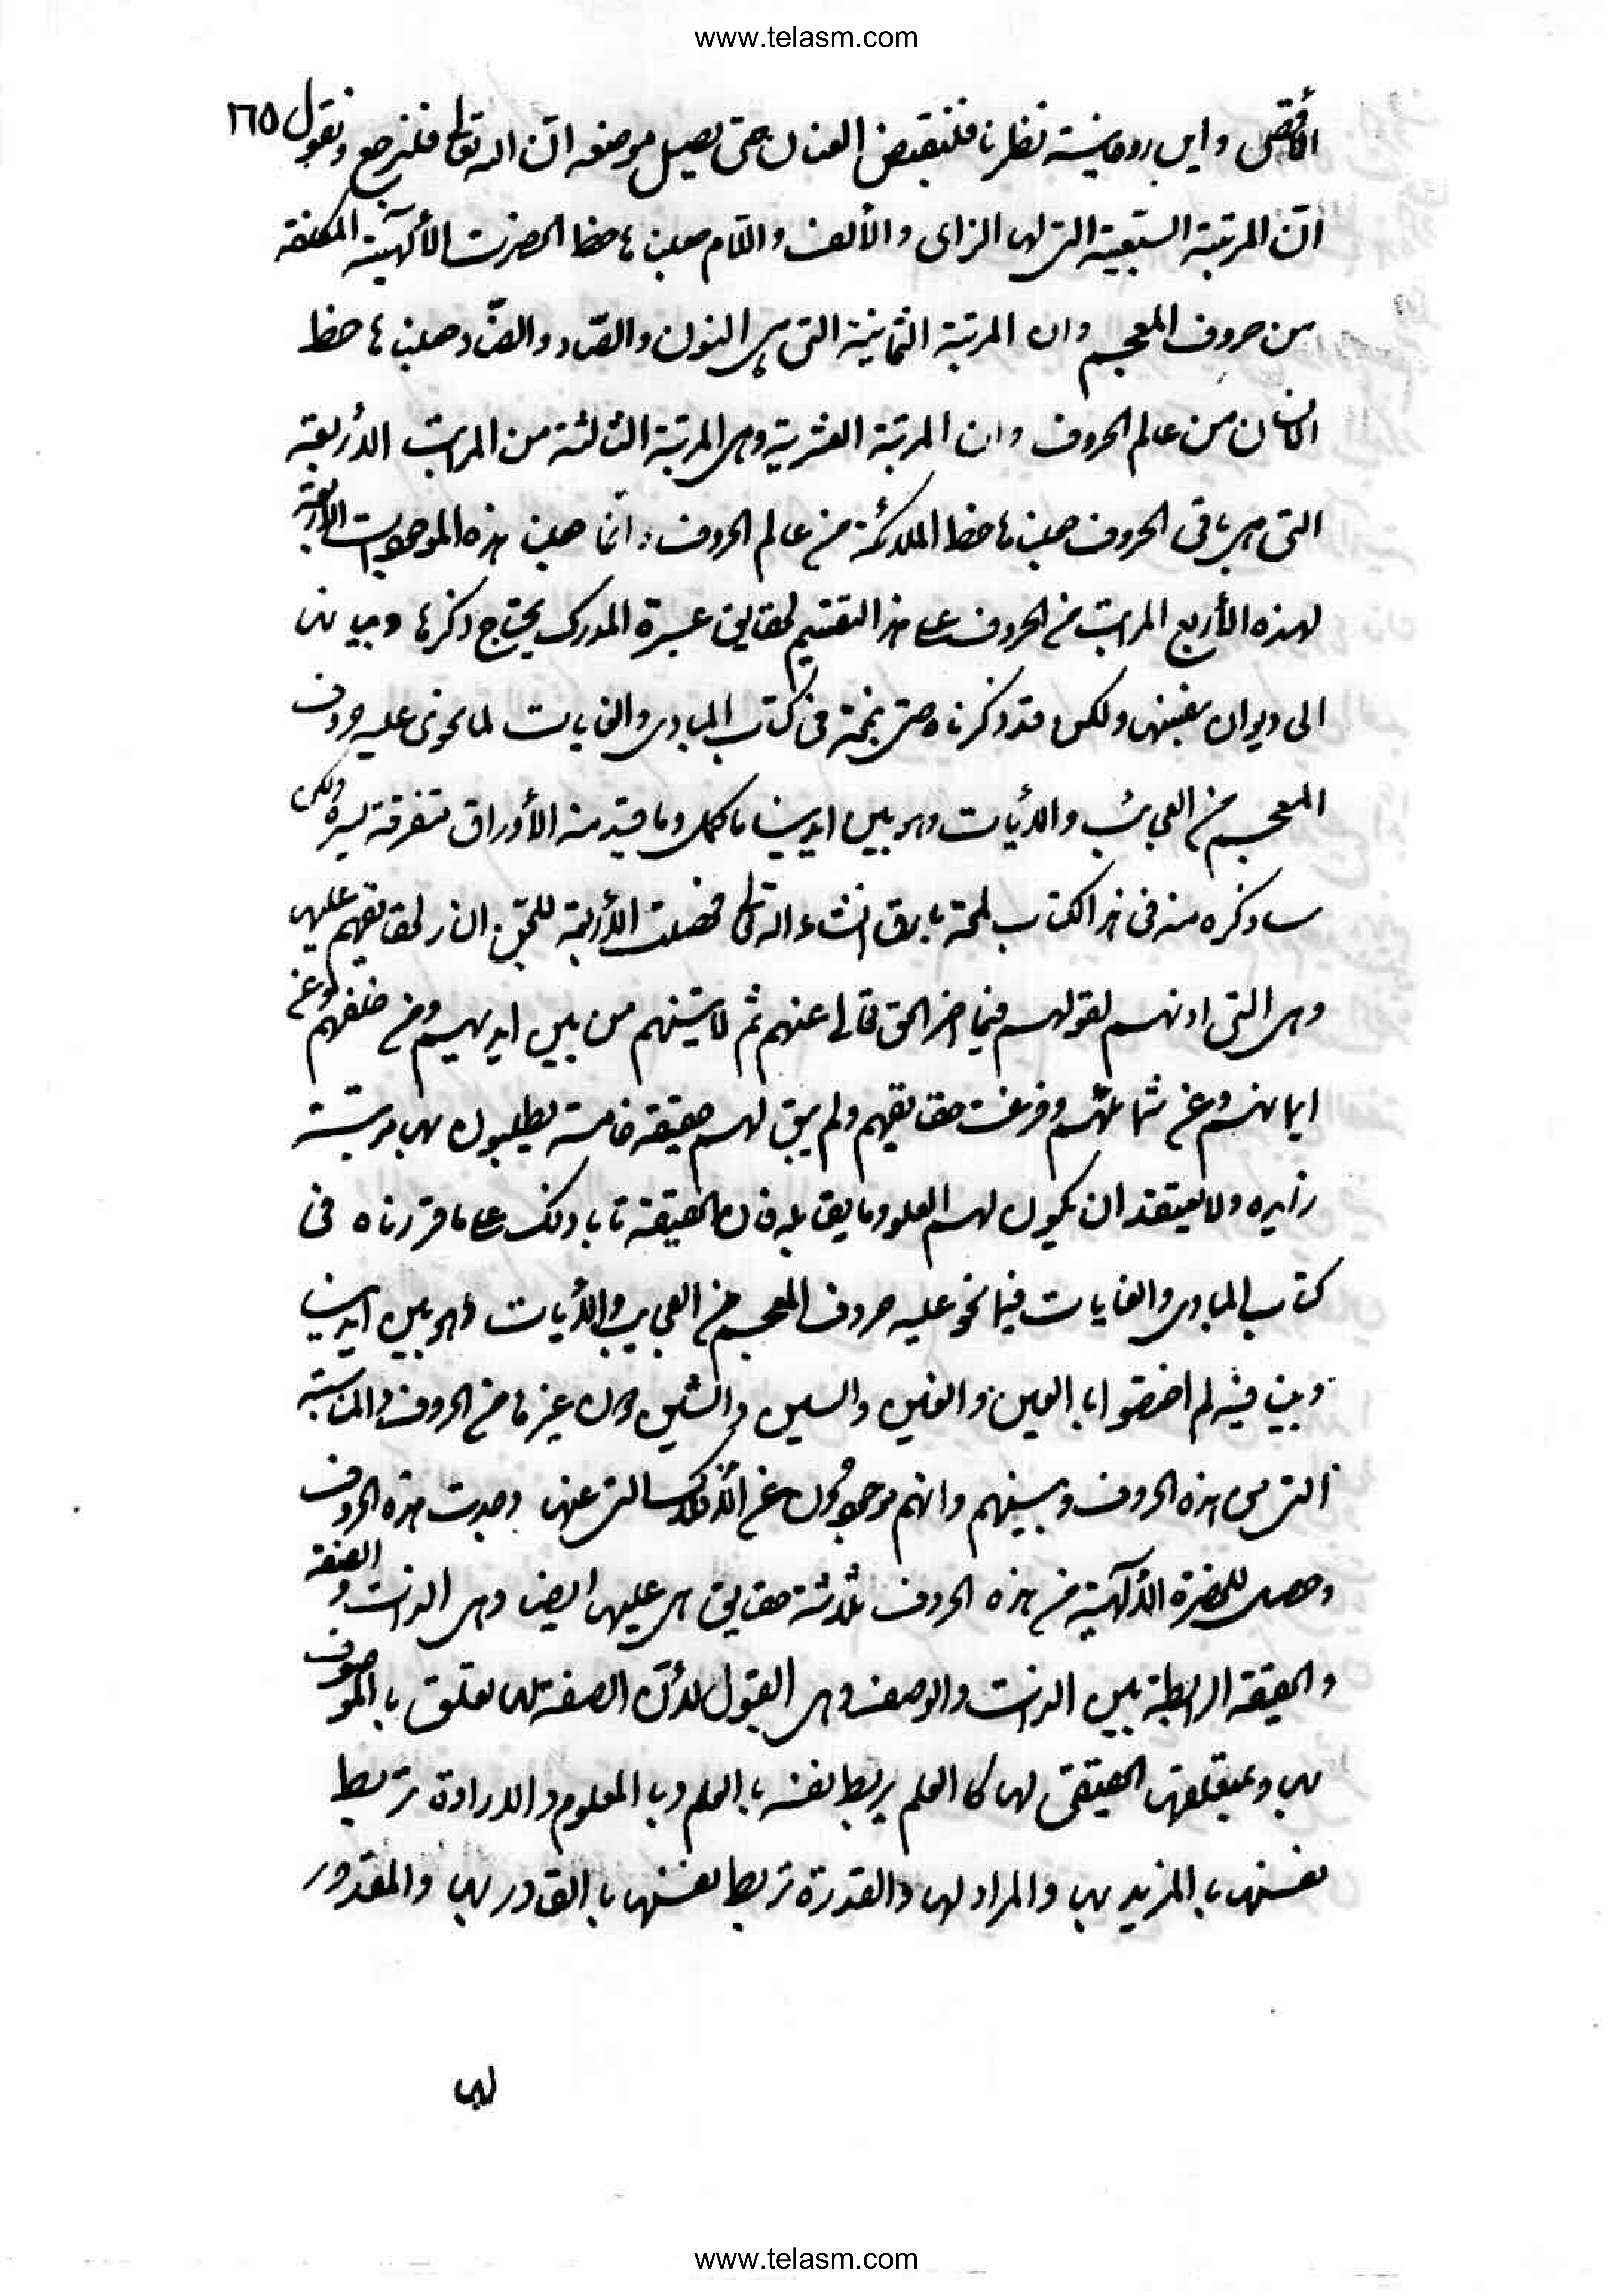 www.telasm.com
١٦٥
الأقصى و اين روحانيته نظرنا فلنقبض العنان حتى نصل موضعه ان الله تعالى فلنرجع ونقول
ان المرتبة السبعية التى لها الزاى و الألف و اللام جعلناها حظا الحضرت الألهية المكلفة
من حروف المعجم وان المرتبة الثمانية التى هى النون و الصّاد و الضّاد جعلناها حظا
الانسان من عالم الحروف و ان المرتبة العشرية وهى المرتبة الثالثة من المراتب الأربعة
التى هى باقى الحروف جعلناها حظ الملائكة من عالم الحروف و انّما جعلنا هذه الموجودات الأربعة
لهذه الأربع المراتب من الحروف على هذا التقسيم لحقايق عسرة المدرك يحتاج ذكرها وبيانها
الى ديوان بنفسها ولكن قد ذكرناه حتى نتمه فى كتاب المبادى والغايات لما تحوى عليه حروف
المعجم من العجائب والأيات وهو بين ايدينا ما كمل وما قيد منه الأوراق متفرقة يسيرة ولكن
ساذكره منه فى هذا الكتاب لمحة بارق انشاء الله تعالى فحصلت الأربعة للجن النار لحقايقهم عليها
وهى التى ادتهم لقولهم فيما اخبر الحق تعالى عنهم ثم لاتينهم من بين ايديهم ومن خلفهم وعن
ايمانهم وعن شمائلهم وفرغت حقايقهم ولم يبق لهم حقيقة خامسة يطلبون بها مرتبة
زايده ولا يعتقد ان يكون لهم العلو وما يقابله فان الحقيقة تابا ذلك على ما قررناه فى
كتاب المبادى والغايات فيما تحو عليه حروف المعجم من العجايب والأيات وهو بين ايدينا
وبينا فيه لم اختصوا بالعين والغين والسين والشين دون غيرها من الحروف والمناسبة
التى بين هذه الحروف وبينهم وانهم موجودون عن الأفلاك التى عنها وجدت هذه الحروف
وحصل للحضرة الألهية من هذه الحروف ثلاثة حقايق هى عليها ايضا وهى الذات و الصفة
والحقيقة الرابطة بين الذات والوصف وهى القبول لأن الصفة لها تعلق بالموصوف
بها وبمتعلقها الحقيقى لها كالعلم يربط نفسه بالعلم وبالمعلوم والارادة تربط
نفسها بالمريد بها والمراد لها والقدرة تربط نفسها بالقادر بها والمقدور
لها
www.telasm.com